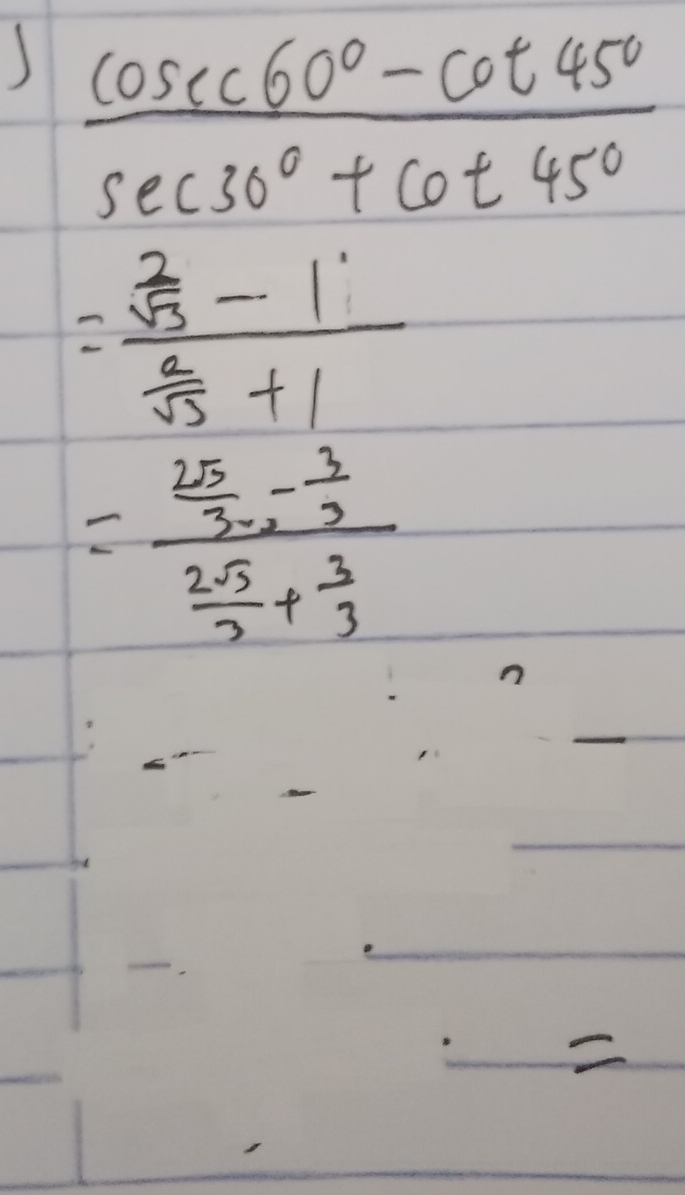 ) cosec60° - cot 45°
sec30° + cot 45°
= 2/√3 - 1
2/√3 + 1
= 2√3/3 - 3/3
2√3/3 + 3/3
=